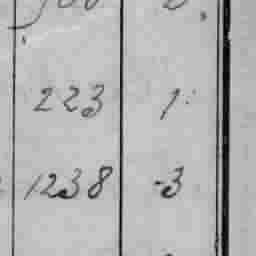 223 1
1238 -3